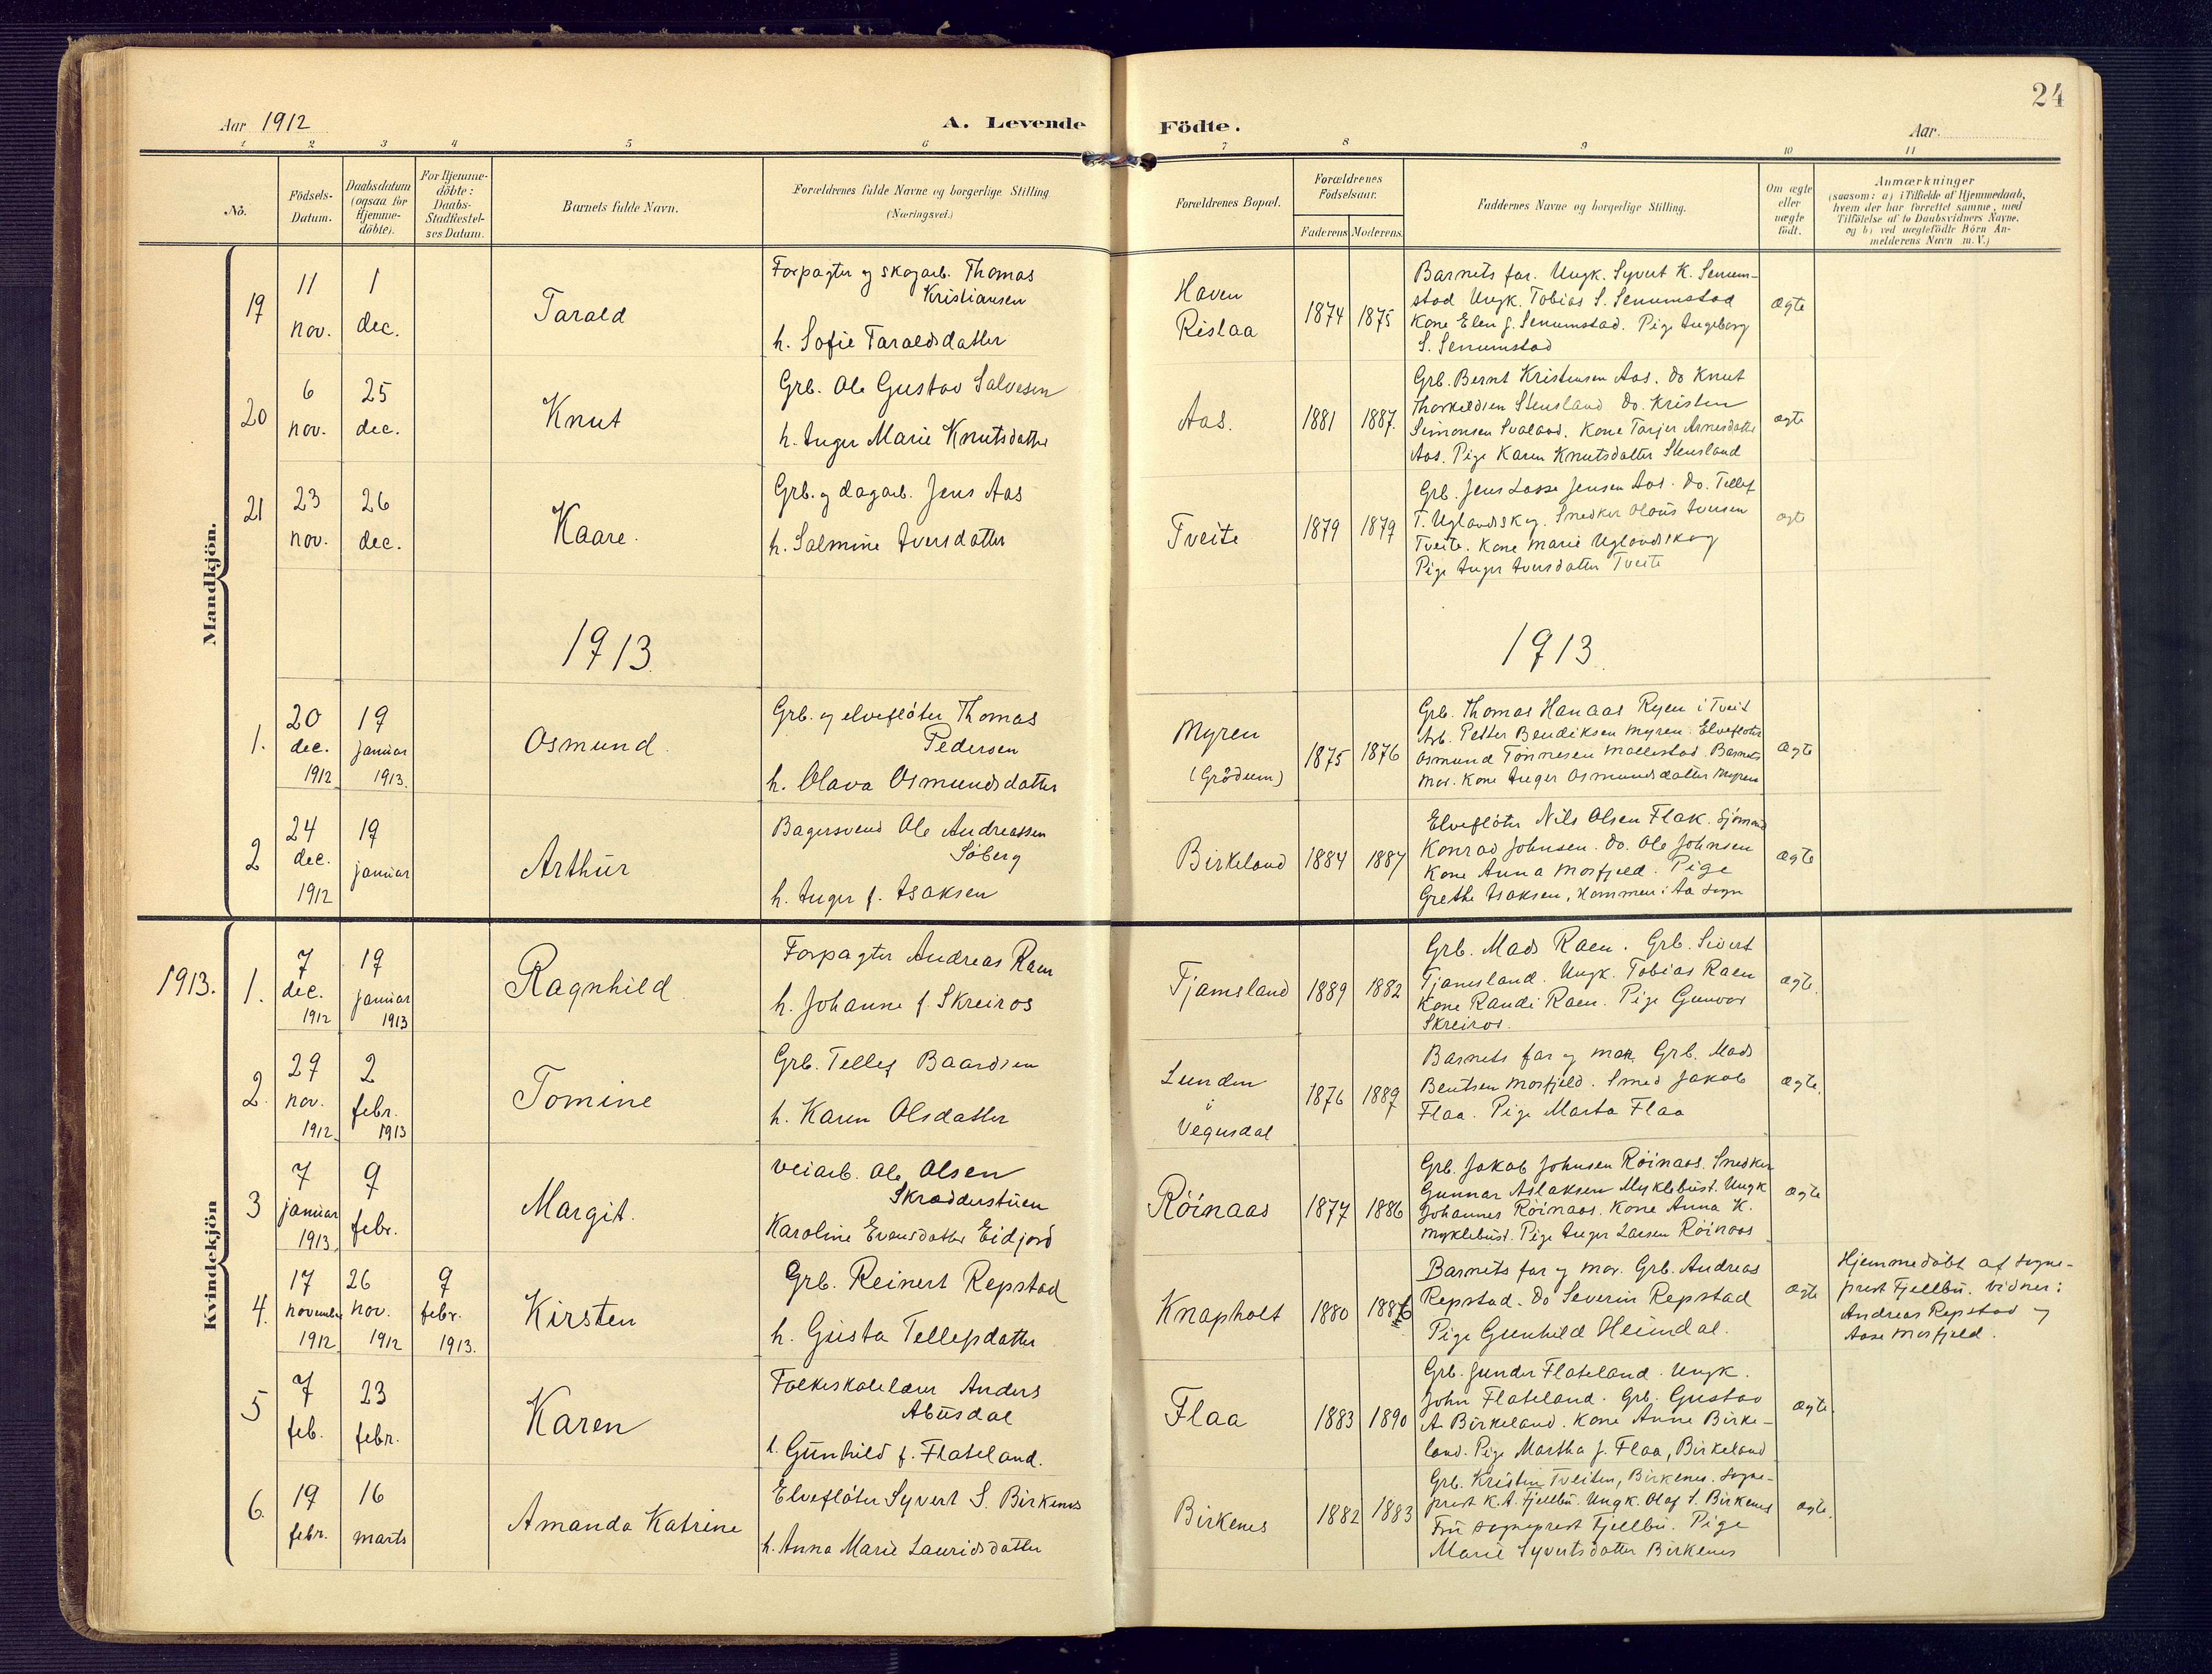 24
Aar 1912
A. Levende
Födte.
Aar.
1 2 3 4 5 6 7 8 9 10 11
No.
Födsels-
Datum.
Daabsdatum
(ogsaa for
Hjemme-
döbte).
For Hjemme-
döbte:
Daabs-
Stadfæstel-
ses Datum.
Barnets fulde Navn.
Forældrenes fulde Navne og borgerlige Stilling
(Næringsvei.)
Forældrenes Bopæl.
Forældrenes
Födselsaar.
Faderens Moderens
Faddernes Navne og borgerlige Stilling.
Om ægte
eller
uægte
födt.
Anmærkninger
(saasom: a) i Tilfælde af Hjemmedaab,
hvem der har forrettet samme, med
Tilföielse af to Daabsvidners Navne.
og b) ved uægtefödte Börn An-
melderens Navn m. V.)
Mandkjön.
19
11
nov.
1
dec.
Tarald
Forpagter og skogarb. Thomas
Kristiansen
h. Sofie Taraldsdatter
Haven
Rislaa
1874
1875
Barnets far. Ungk. Syvert K. Senum-
stad Ungk. Tobias S. Senumstad
Kone Elen J. Senumstad. Pige Ingeborg
S. Senumstad
ægte
20
6
nov.
25
dec.
Knut
Grb. Ole Gustav Salvesen
h. Inger Marie Knutsdatter
Aas.
1881
1887.
Grb. Bernt Kristensen Aas. Do Knut
Thorkildsen Stensland Do. Kristen
Simonsen Svaland. Kone Tarjer Arnesdatter
Aas. Pige Karen Knutsdatter Stensland
ægte
21
23
nov.
26
dec.
Kaare.
Grb. og dagarb. Jens Aas
h. Salmine Iversdatter
Tveite
1879
1879
Grb. Jens Lasse Jensen Aas. Do. Tellef
T. Uglandskog. Snedker Olaus Iversen
Tveite. Kone Marie Uglandskog
Pige Inger Iversdatter Tveite
ægte
1913
1913.
1.
20
dec.
1912
19
januar
1913.
Osmund.
Grb. og elvefløter Thomas
Pedersen
h. Olava Osmundsdatter
Myren
(Grødum)
1875
1876
Grb. Thomas Hanaas Ryen i Tveit
Arb. Petter Bendiksen Myren. Elvefløter
Osmund Tønnesen Mollestad. Barnets
mor. Kone Inger Osmundsdatter Myren
ægte
2
24
dec.
1912
19
januar
Arthur
Bagersvend Ole Andreassen
Søberg
h. Inger f. Isaksen
Birkeland
1884
1887
Elvefløter Nils Olsen Flak. Sjømand
Konrad Johnsen. Do. Ole Johnsen
Kone Anna Mosfjeld. Pige
Grethe Isaksen, Hommen i Aa sogn
ægte
Kvindekjön
1913.
1.
7
dec.
1912
19
januar
1913
Ragnhild
Forpagter Andreas Raen
h. Johanne f. Skreiros
Tjamsland
1889
1882
Grb. Mads Raen. Grb. Sivert
Tjamsland. Ungk. Tobias Raen
Kone Randi Raen. Pige Gunvor
Skreiros.
ægte.
2.
29
nov.
1912
2
febr.
1913
Tomine
Grb. Tellef Baardsen
h. Karen Olsdatter
Lunden
i
Vegusdal
1876
1889
Barnets far og mor. Grb. Mads
Bentsen Mosfjeld. Smed Jakob
Flaa. Pige Marta Flaa
ægte
3
7
januar
1913
9
febr.
Margit.
Veiarb. Ole Olsen
Skradderstuen
Karoline Evensdatter Eidjord
Røinaas
1877
1886
Grb. Jakob Johnsen Røinaas. Snedker
Gunnar Aslaksen Myklebust. Ungk
Johannes Røinaas. Kone Anna K.
Myklebust. Pige Inger Larsen Røinaas
ægte
4.
17
november
1912
26
nov.
1912
9
febr.
1913.
Kirsten
Grb. Reinert Repstad
h. Gusta Tellefsdatter
Knapholt
1880
1886
Barnets far og mor. Grb. Andreas
Repstad. Do Severin Repstad
Pige Gunhild Heimdal.
ægte
Hjemmedøbt af sogne-
prest Fjellbu. Vidner:
Andreas Repstad og
Aase Mosfjeld.
5
7
feb.
23
febr.
Karen
Folkeskolelærer Anders
Abusdal
h. Gunhild f. Flateland.
Flaa
1883
1890
Grb. Gunder Flateland. Ungk.
John Flateland. Grb. Gustav
A. Birkeland. Kone Anne Birke-
land. Pige Martha J. Flaa, Birkeland
ægte
6.
19
febr.
16
marts
Amanda Katrine
Elvefløter Syvert S. Birkenes
h. Anna Marie Lauridsdatter
Birkenes
1882
1883
Grb. Kristen Tveiten, Birkenes. Sogne-
prest K. A. Fjellbu. Ungk. Olaf S. Birkenes
Fru sogneprest Fjellbu. Pige
Marie Syvertsdatter Birkenes
ægte.